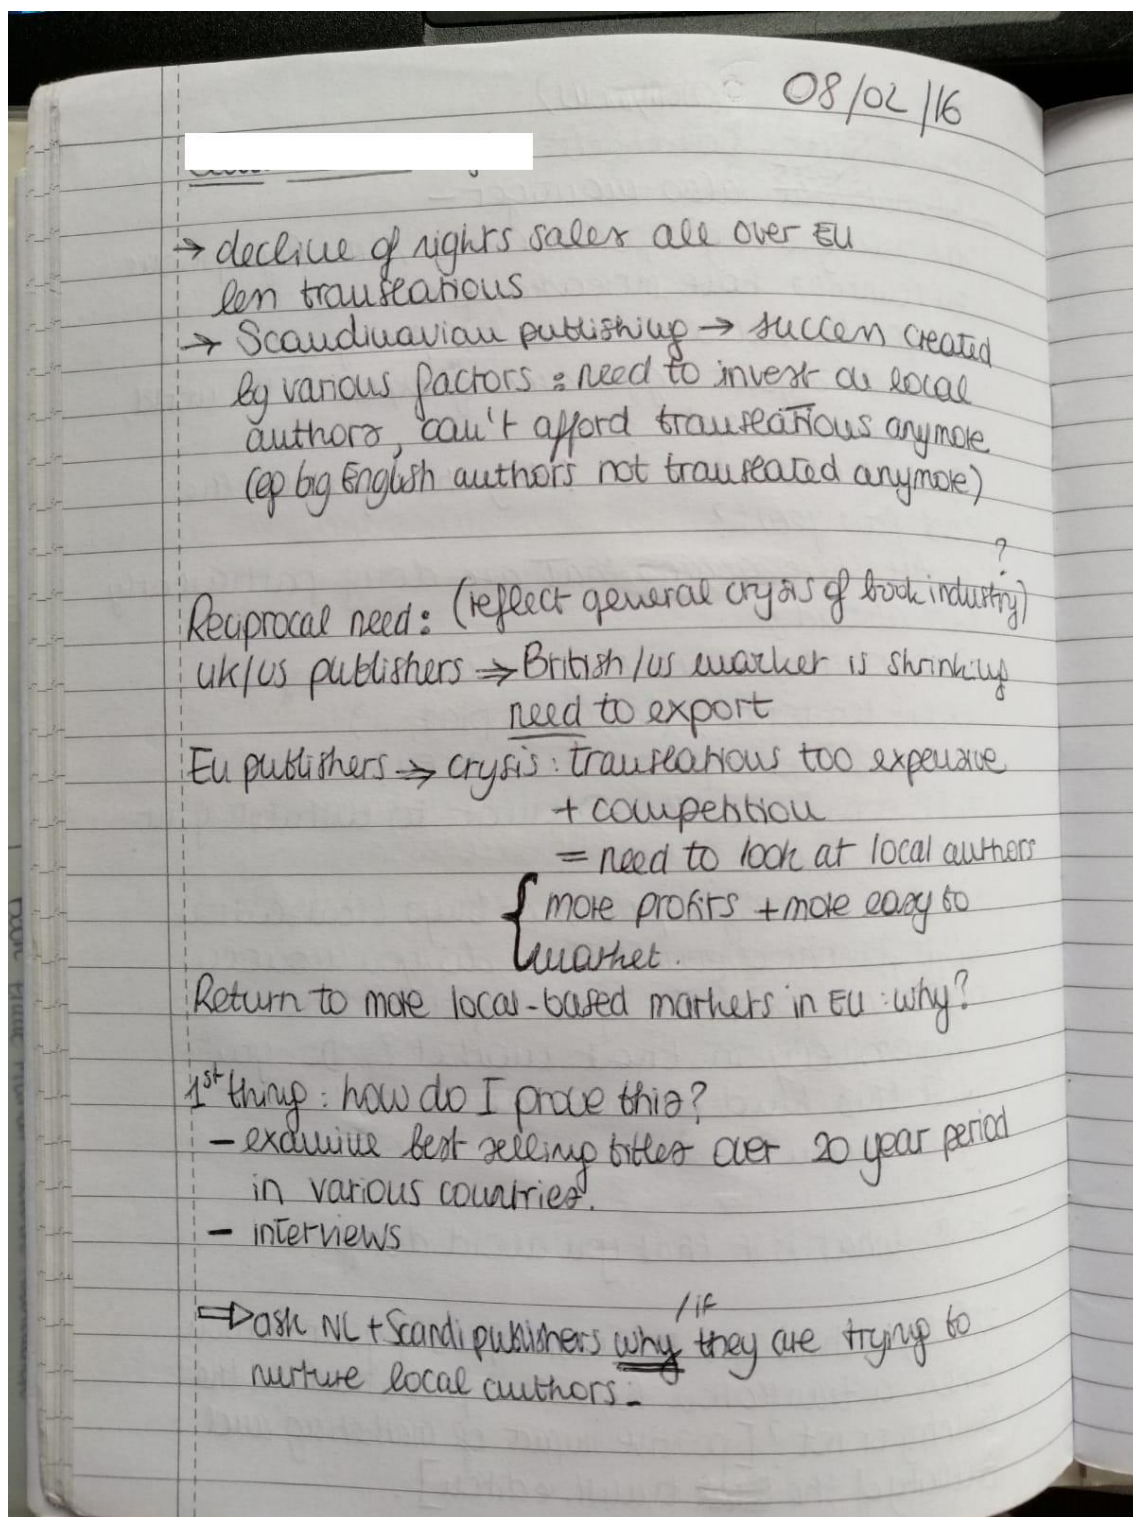 08/02/16
→ decline of rights sales all over EU
less translations
→ Scandinavian publishing → success created
by various factors : need to invest on local
authors, can't afford translations anymore
(eg big English authors not translated anymore)
?
Reciprocal need: (reflect general crysis of book industry)
UK/US publishers ⇒ British/US market is shrinking
need to export
Eu publishers ⇒ crysis : translations too expensive
+ competition
= need to look at local authors
{ more profits + more easy to
market.
Return to more local-based markets in EU : why?
1st thing : how do I prove this?
- examine best selling titles over 20 year period
in various countries.
- interviews
/if
⇒ ask NL + Scandi publishers why they are trying to
nurture local authors.